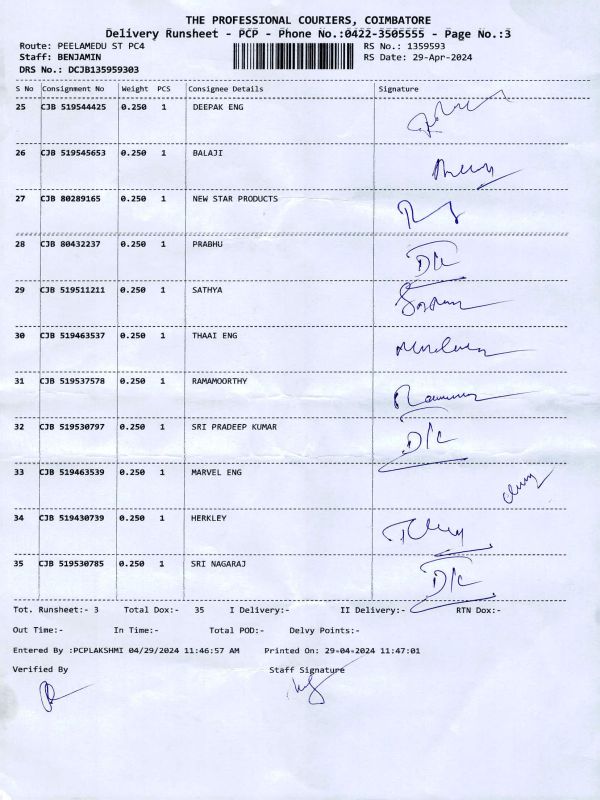 THE PROFESSIONAL COURIERS, COIMBATORE
Delivery Runsheet - PCP - Phone No.:0422-3505555 - Page No.:3
Route: PEELAMEDU ST PC4 RS No.: 1359593
Staff: BENJAMIN RS Date: 29-Apr-2024
DRS No.: DCJB135959303
S No Consignment No Weight PCS Consignee Details Signature
25 CJB 519544425 0.250 1 DEEPAK ENG
26 CJB 519545653 0.250 1 BALAJI
27 CJB 80289165 0.250 1 NEW STAR PRODUCTS
28 CJB 80432237 0.250 1 PRABHU D/C
29 CJB 519511211 0.250 1 SATHYA
30 CJB 519463537 0.250 1 THAAI ENG
31 CJB 519537578 0.250 1 RAMAMOORTHY
32 CJB 519530797 0.250 1 SRI PRADEEP KUMAR D/C
33 CJB 519463539 0.250 1 MARVEL ENG
34 CJB 519430739 0.250 1 HERKLEY
35 CJB 519530785 0.250 1 SRI NAGARAJ D/C
Tot. Runsheet:- 3 Total Dox:- 35 I Delivery:- II Delivery:- RTN Dox:-
Out Time:- In Time:- Total POD:- Delvy Points:-
Entered By :PCPLAKSHMI 04/29/2024 11:46:57 AM Printed On: 29-04-2024 11:47:01
Verified By Staff Signature